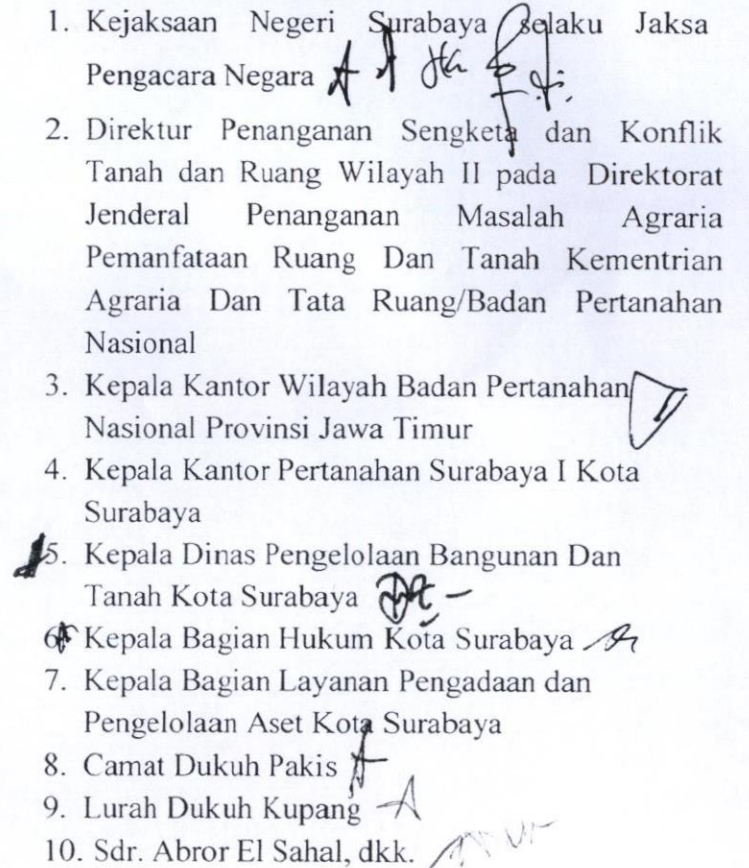 1. Kejaksaan Negeri Surabaya selaku Jaksa
Pengacara Negara
2. Direktur Penanganan Sengketa dan Konflik
Tanah dan Ruang Wilayah II pada Direktorat
Jenderal Penanganan Masalah Agraria
Pemanfataan Ruang Dan Tanah Kementrian
Agraria Dan Tata Ruang/Badan Pertanahan
Nasional
3. Kepala Kantor Wilayah Badan Pertanahan
Nasional Provinsi Jawa Timur
4. Kepala Kantor Pertanahan Surabaya I Kota
Surabaya
5. Kepala Dinas Pengelolaan Bangunan Dan
Tanah Kota Surabaya
6. Kepala Bagian Hukum Kota Surabaya
7. Kepala Bagian Layanan Pengadaan dan
Pengelolaan Aset Kota Surabaya
8. Camat Dukuh Pakis
9. Lurah Dukuh Kupang
10. Sdr. Abror El Sahal, dkk.